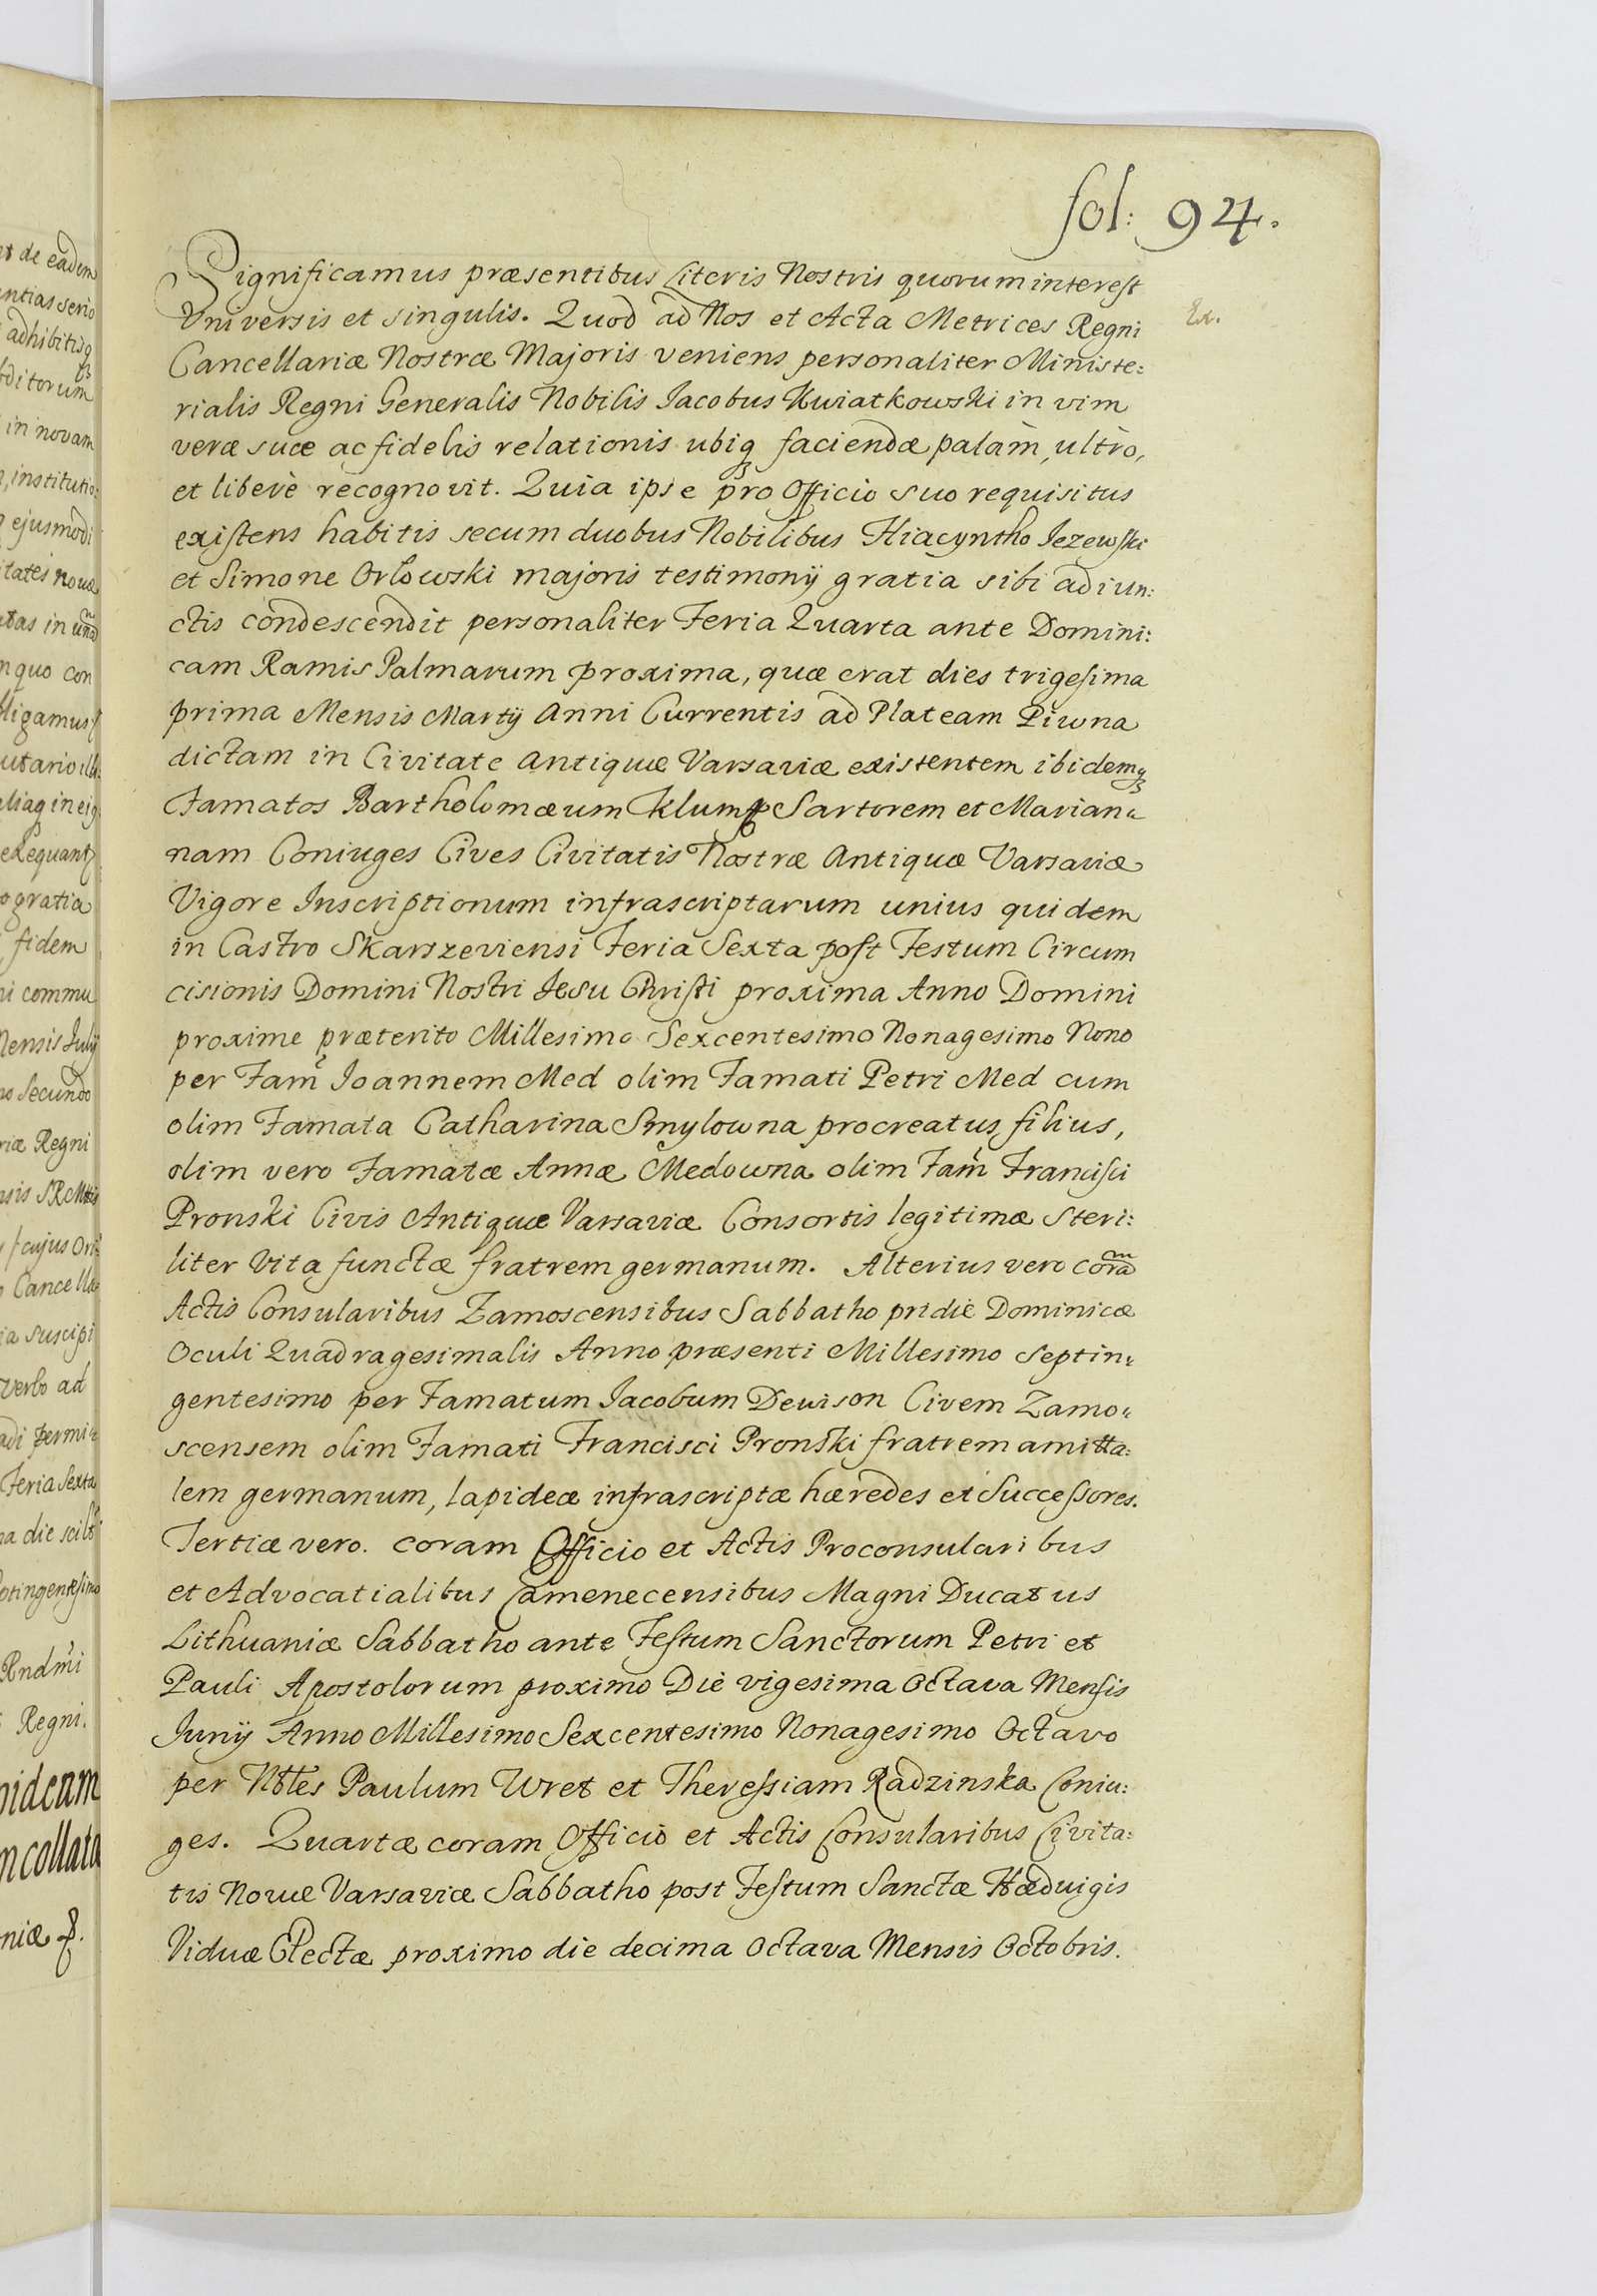 fol: 94.
Significamus præsentibus Literis Nostris quorum interest
Universis et singulis. Quod ad Nos et Acta Metrices Regni
Ex.
Cancellariæ Nostræ Majoris veniens personaliter Ministe:
rialis Regni Generalis Nobilis Iacobus Kwiatkowski in vim
veræ suæ ac fidelis relationis ubiq faciendæ palàm, ultrò,
et liberè recognovit. Quia ipse pro Officio suo requisitus
existens habitis secum duobus Nobilibus Hiacyntho Jezewski
et Simone Orłowski majoris testimonij gratia sibi adiun:
ctis condescendit personaliter Feria Quarta ante Domini:
cam Ramis Palmarum proxima, quæ erat dies trigesima
prima Mensis Martij Anni Currentis ad Plateam Piwna
dictam in Civitate Antiquæ Varsaviæ existentem ibidemq
Famatos Bartholomæum Klump Sartorem et Marian:
nam Coniuges Cives Civitatis Nostræ Antiquæ Varsaviæ
Vigore Inscriptionum infrascriptarum unius quidem
in Castro Skarszeviensi Feria Sexta post Festum Circum
cisionis Domini Nostri Jesu Christi proxima Anno Domini
proxime præterito Millesimo Sexcentesimo Nonagesimo Nono
per Fam Joannem Med olim Famati Petri Med cum
olim Famata Catharina Smylowna procreatus filius,
olim vero Famatæ Annæ Medowna olim Fam Francisci
Pronski Civis Antiquæ Varsaviæ Consortis legitimæ Steri:
liter vita functæ fratrem germanum. Alterius vero coram
Actis Consularibus Zamoscensibus Sabbatho pridie Dominicæ
Oculi Quadragesimalis Anno præsenti Millesimo Septin:
gentesimo per Famatum Jacobum Dewison Civem Zamo:
scensem olim Famati Francisci Pronski fratrem amitta:
lem germanum, lapideæ infrascriptæ hæredes et Successores.
Tertiæ vero. coram Officio et Actis Proconsularibus
et Advocatialibus Camenecensibus Magni Ducatus
Lithuaniæ Sabbatho ante Festum Sanctorum Petri et
Pauli Apostolorum proximo Die vigesima Octava Mensis
Junij Anno Millesimo Sexcentesimo Nonagesimo Octavo
per Nbles Paulum Wret et Theressiam Radzinska Coniu:
ges. Quartæ coram Officio et Actis Consularibus Civita:
tis Novæ Varsaviæ Sabbatho post Festum Sanctæ Hæduigis
Viduæ Electæ proximo die decima Octava Mensis Octobris.